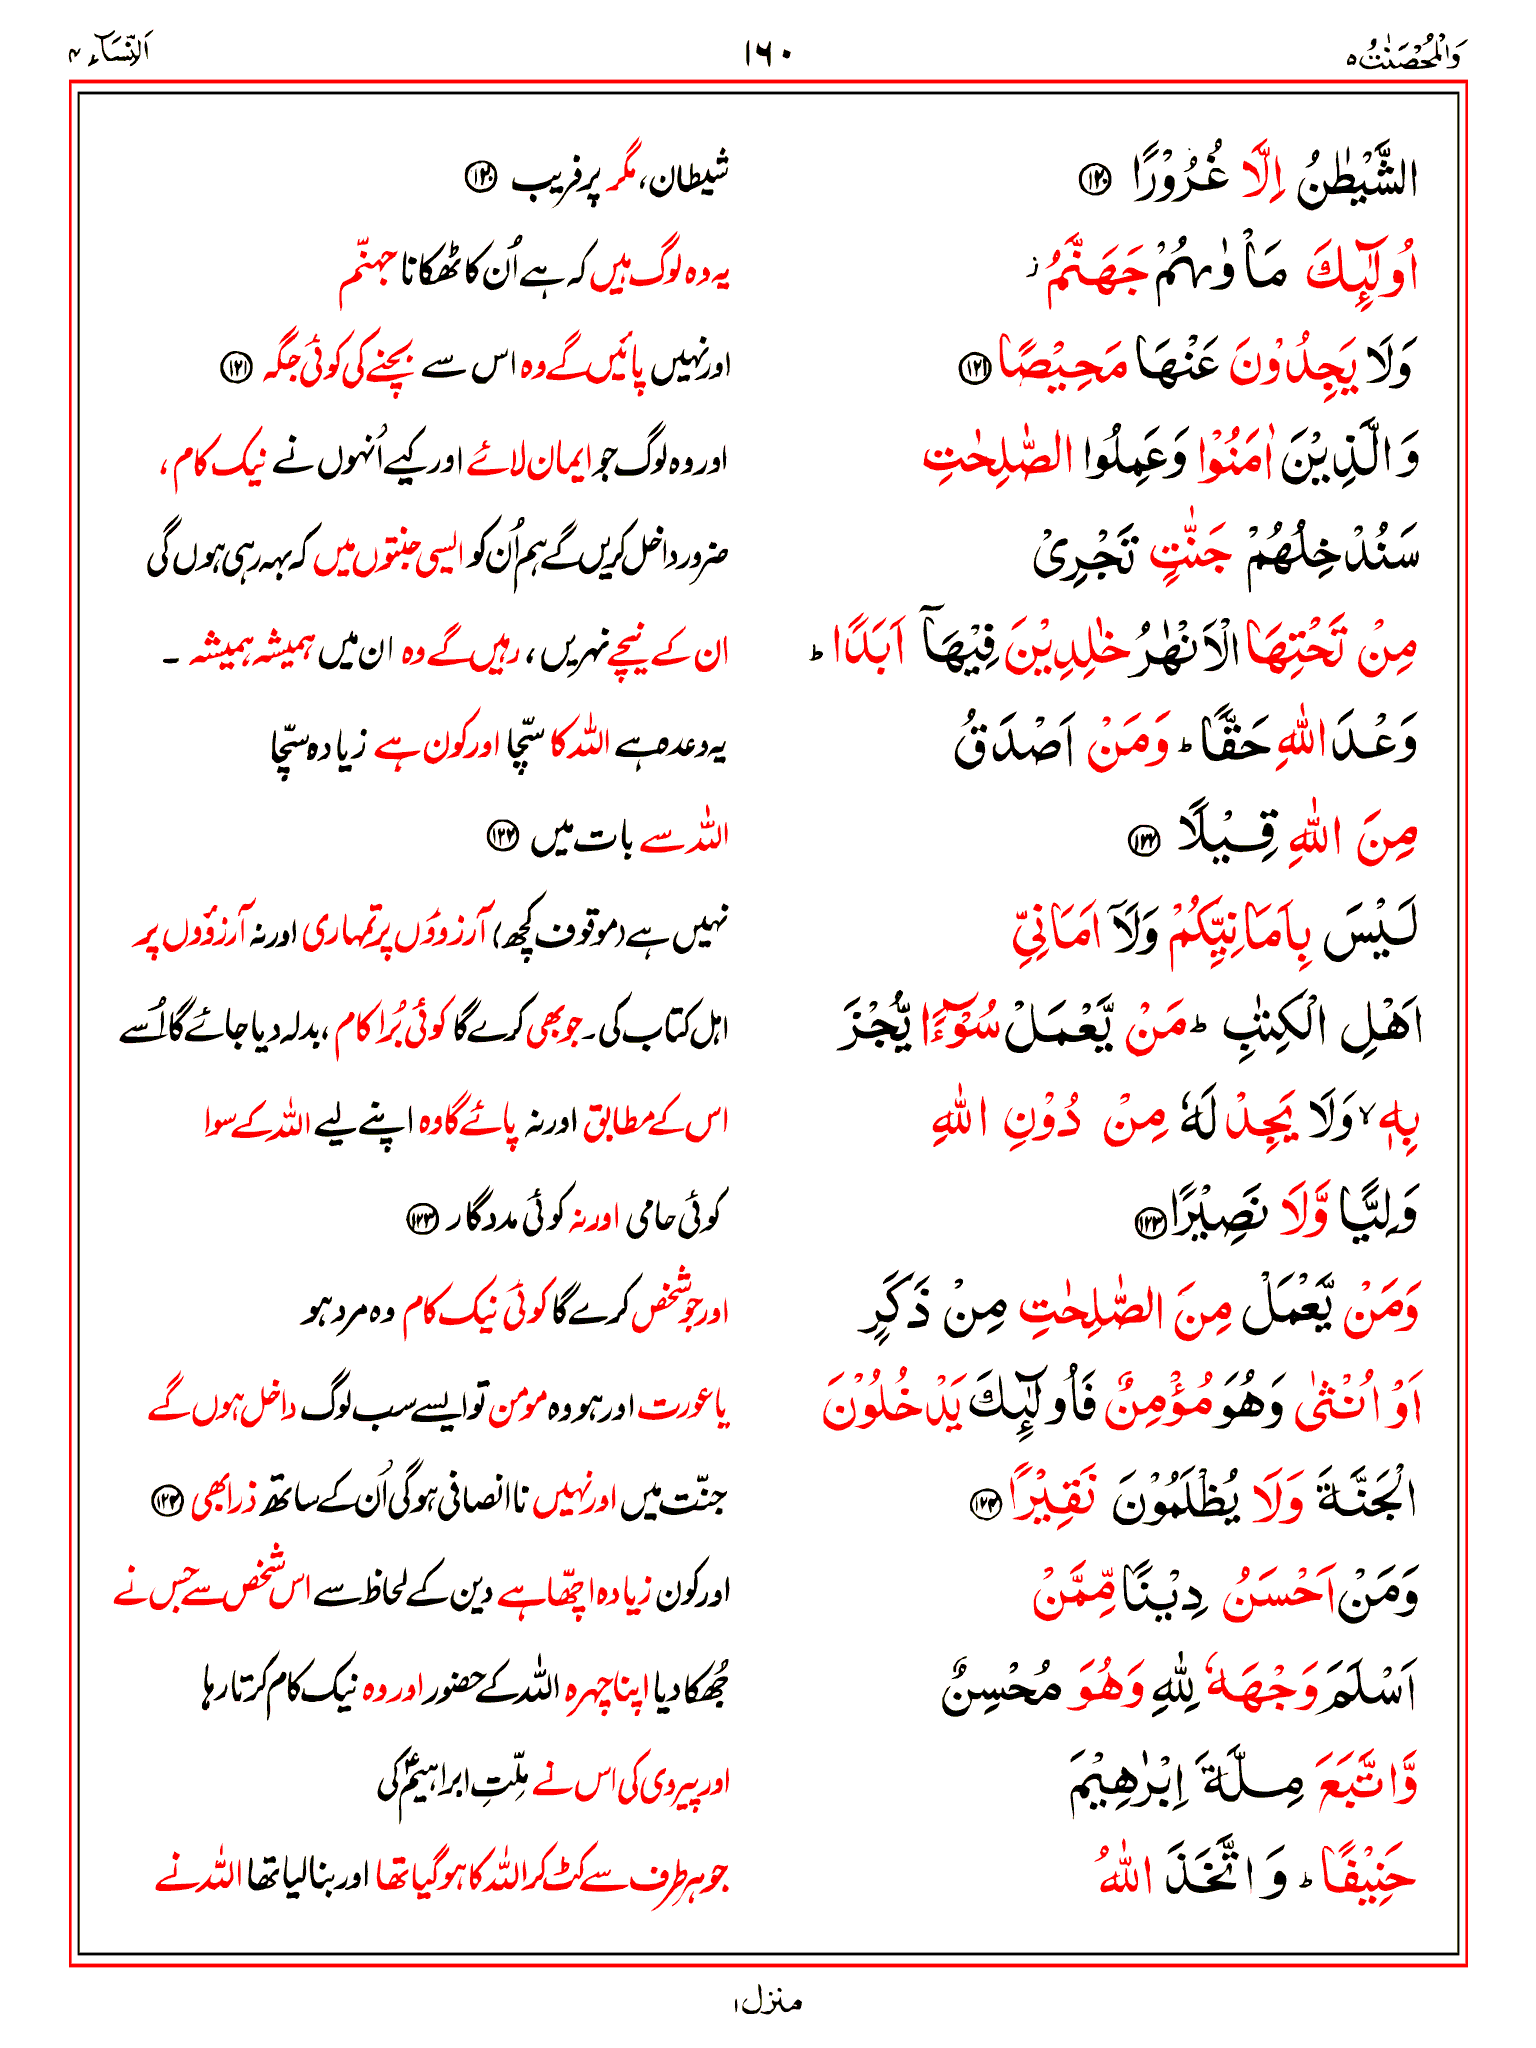 وَالْمُحْصَنٰتُ ۵
۱۶۰
اَلنِّسَآء ۴
الشَّيْطٰنُ اِلَّا غُرُوْرًا ﴿۱۲۰﴾
شیطان، مگر پر فریب ﴿۱۲۰﴾
اُولٰٓئِكَ مَاْوٰىهُمْ جَهَنَّمُ ز
یہ وہ لوگ ہیں کہ ہے اُن کا ٹھکانا جہنّم
وَلَا يَجِدُوْنَ عَنْهَا مَحِيْصًا ﴿۱۲۱﴾
اور نہیں پائیں گے وہ اس سے بچنے کی کوئی جگہ ﴿۱۲۱﴾
وَالَّذِيْنَ اٰمَنُوْا وَعَمِلُوا الصّٰلِحٰتِ
اور وہ لوگ جو ایمان لائے اور کیے اُنہوں نے نیک کام،
سَنُدْخِلُهُمْ جَنّٰتٍ تَجْرِىْ
ضرور داخل کریں گے ہم اُن کو ایسی جنتوں میں کہ بہہ رہی ہوں گی
مِنْ تَحْتِهَا الْاَنْهٰرُ خٰلِدِيْنَ فِيْهَاۤ اَبَدًا ؕ
ان کے نیچے نہریں، رہیں گے وہ ان میں ہمیشہ ہمیشہ ۔
وَعْدَ اللّٰهِ حَقًّا ؕ وَمَنْ اَصْدَقُ
یہ وعدہ ہے اللہ کا سچّا اور کون ہے زیادہ سچّا
مِنَ اللّٰهِ قِيْلًا ﴿۱۲۲﴾
اللہ سے بات میں ﴿۱۲۲﴾
لَيْسَ بِاَمَانِيِّكُمْ وَلَاۤ اَمَانِىِّ
نہیں ہے (موقوف کچھ) آرزوؤں پر تمہاری اور نہ آرزوؤں پر
اَهْلِ الْكِتٰبِ ؕ مَنْ يَّعْمَلْ سُوْٓءًا يُّجْزَ
اہل کتاب کی۔ جو بھی کرے گا کوئی بُرا کام، بدلہ دیا جائے گا اُسے
بِهٖ ۙ وَلَا يَجِدْ لَهٗ مِنْ دُوْنِ اللّٰهِ
اس کے مطابق اور نہ پائے گا وہ اپنے لیے اللہ کے سوا
وَلِيًّا وَّلَا نَصِيْرًا ﴿۱۲۳﴾
کوئی حامی اور نہ کوئی مددگار ﴿۱۲۳﴾
وَمَنْ يَّعْمَلْ مِنَ الصّٰلِحٰتِ مِنْ ذَكَرٍ
اور جو شخص کرے گا کوئی نیک کام وہ مرد ہو
اَوْ اُنْثٰى وَهُوَ مُؤْمِنٌ فَاُولٰٓئِكَ يَدْخُلُوْنَ
یا عورت اور ہو وہ مومن تو ایسے سب لوگ داخل ہوں گے
الْجَنَّةَ وَلَا يُظْلَمُوْنَ نَقِيْرًا ﴿۱۲۴﴾
جنّت میں اور نہیں ناانصافی ہوگی اُن کے ساتھ ذرا بھی ﴿۱۲۴﴾
وَمَنْ اَحْسَنُ دِيْنًا مِّمَّنْ
اور کون زیادہ اچھّا ہے دین کے لحاظ سے اس شخص سے جس نے
اَسْلَمَ وَجْهَهٗ لِلّٰهِ وَهُوَ مُحْسِنٌ
جُھکا دیا اپنا چہرہ اللہ کے حضور اور وہ نیک کام کرتا رہا
وَّاتَّبَعَ مِلَّةَ اِبْرٰهِيْمَ
اور پیروی کی اس نے مِلّتِ ابراہیمؑ کی
حَنِيْفًا ؕ وَاتَّخَذَ اللّٰهُ
جو ہر طرف سے کٹ کر اللہ کا ہو گیا تھا اور بنا لیا تھا اللہ نے
منزل ۱